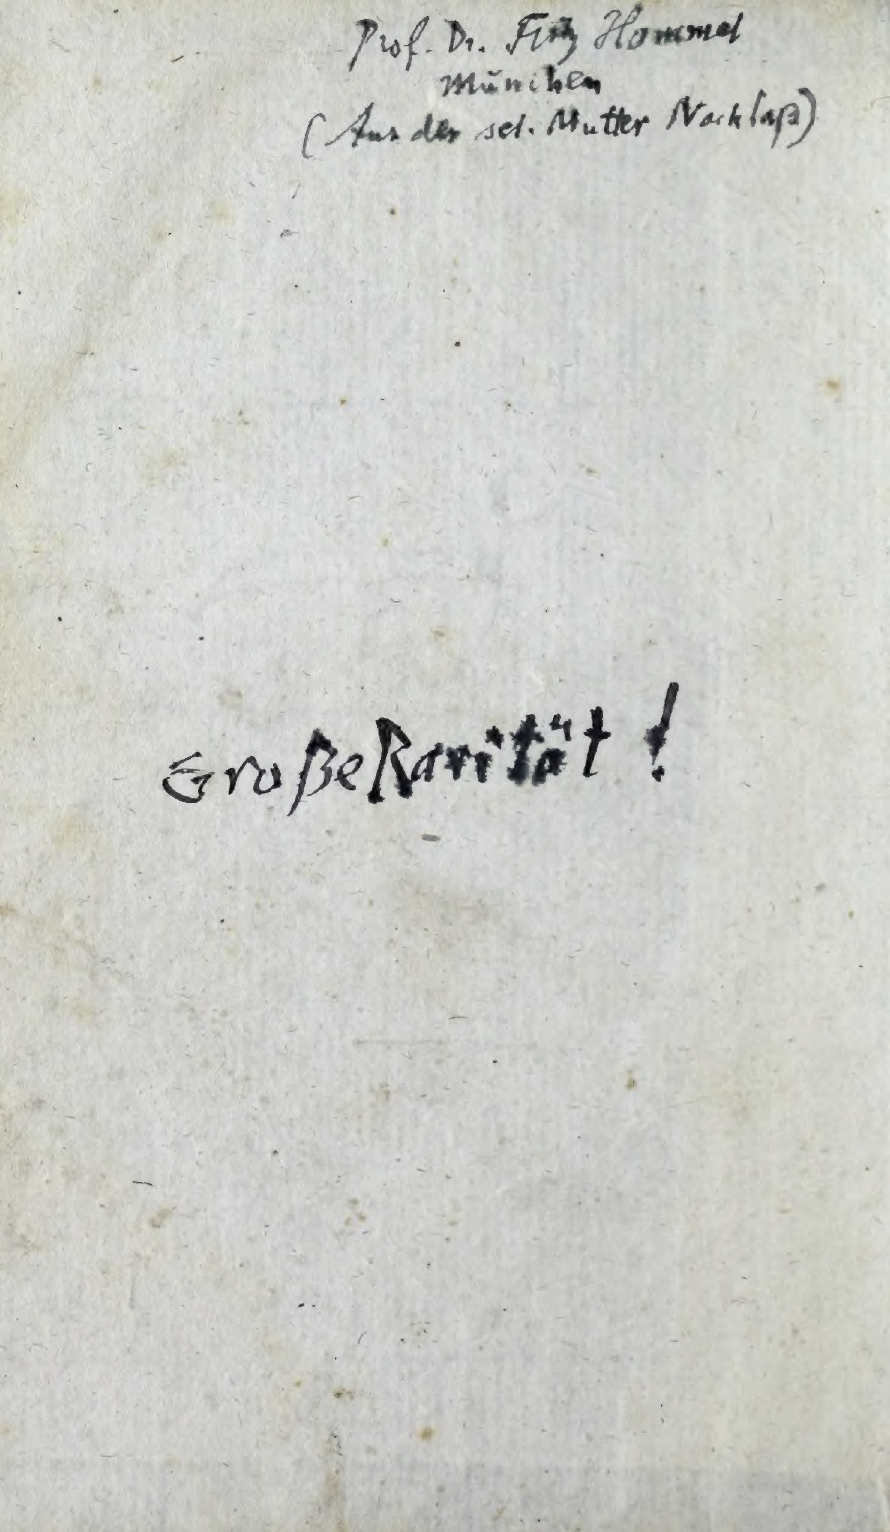 Prof. Dr. Fritz Hommel
München
(Aus der sel. Mutter Nachlaß)
Große Rarität!